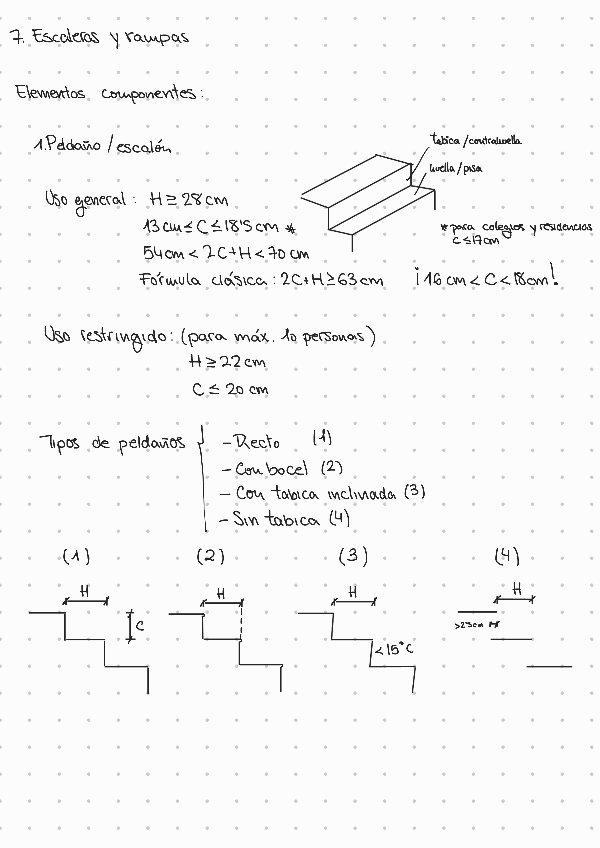 7. Escaleras y rampas
Elementos componentes:
1. Peldaño / escalón
tabica / contrahuella
huella / pisa
Uso general: H ≥ 28 cm
13 cm ≤ C ≤ 18'5 cm *
* para colegios y residencias
C ≤ 17 cm
54 cm < 2C + H < 70 cm
Fórmula clásica: 2C + H ≥ 63 cm ¡16 cm < C < 18 cm!
Uso restringido: (para máx. 10 personas)
H ≥ 22 cm
C ≤ 20 cm
Tipos de peldaños
- Recto (1)
- Con bocel (2)
- Con tabica inclinada (3)
- Sin tabica (4)
(1) (2) (3) (4)
H H H H
C
< 15°C
> 2'5 cm H